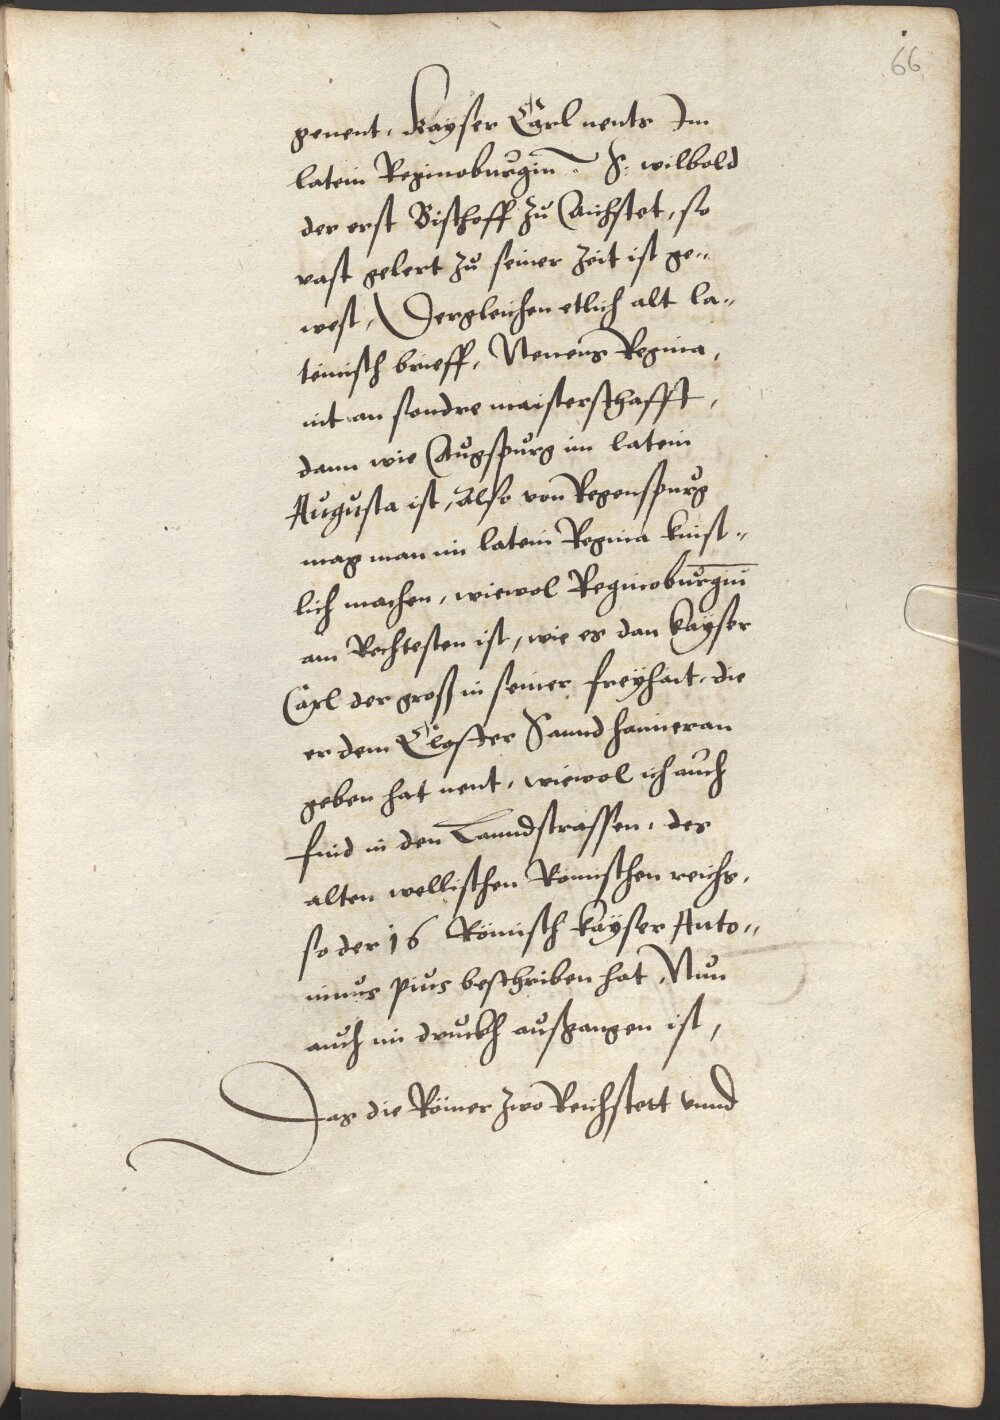 66
genent, Kayser Carl nents Im
latein Reginoburgin̄. S: wilbold
der erst Bischoff zu Aichstet, so
vast gelert zu seiner Zeit ist ge„
west, Dergleichen etlich alt la„
teinisch brieff, Nenens Regina,
nit an sondre maisterschafft,
dann wie Augspurg im latein
Augusta ist, Also von Regenspurg
mag man im latein Regina kinst„
lich machen, wiewol Reginoburgiū
am Rechtesten ist, wie es dan Kayser
Carl der groß in seiner freyhait, die
er dem Closter Sannd haimeran
geben hat nent, wiewol ich auch
find in den Lanndstrassen, des
alten wellischen Römischen reichs,
so der 16 Römisch Kayser Anto„
ninus pius beschriben hat, Nun
auch im druckh außgangen ist,
Das die Römer zwo Reichstett vnnd